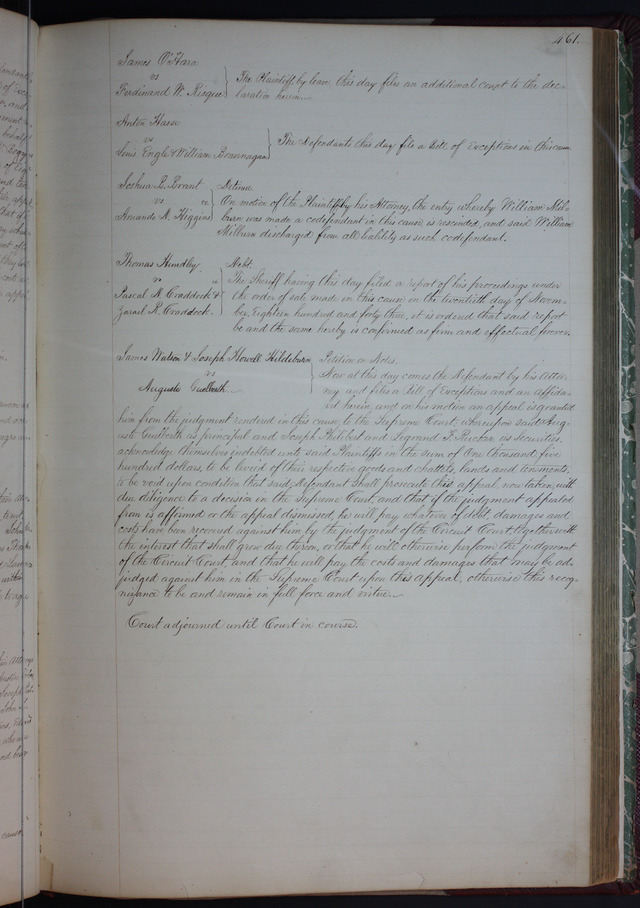 461.
James O'Hara
vs
Ferdinand W. Risque } The Plaintiff by leave, this day files an additional count to the dec-
laration herein.
Anton Hasse
vs
Louis Engle & William Brannagan } The Defendants this day file a Bill of Exceptions in this cause
Joshua B. Brant Detinue.
vs On motion of the Plaintiff by his Attorney, the entry whereby William Mil-
Amanda R. Higgins } burn was made a codefendant in this cause is rescinded, and said William
Milburn discharged from all liability as such codefendant.
Thomas Hundley Debt.
vs The Sheriff having this day filed a report of his proceedings under
Pascal N. Craddock & } the order of sale made in this cause in the twentieth day of Novem-
Zarael R. Craddock. ber, Eighteen hundred and forty three, it is ordered that said report
be and the same hereby is confirmed as firm and effectual forever.
James Watson & Joseph Howell Hildeburn Petition on Notes.
vs } Now at this day comes the Defendant by his Attor-
Auguste Guelberth ney and files a Bill of Exceptions and an affida-
vit herein, and on his motion an appeal is granted
him from the judgment rendered in this cause, to the Supreme Court, whereupon said Aug-
uste Guelberth as principal and Joseph Philibert and as securities,
acknowledge themselves indebted unto said Plaintiffs in the sum of One thousand five
hundred dollars, to be levied of their respective goods and chattels, lands and tenements.
to be void upon condition that said Defendant shall prosecute this appeal now taken, with
due diligence to a decision in the Supreme Court, and that if the judgment appealed
from is affirmed or the appeal dismissed, he will pay whatever of debt, damages and
costs have been recovered against him by the judgment of the Circuit Court together with
the interest that shall grow due thereon, or that he will otherwise perform the judgment
of the Circuit Court, and that he will pay the costs and damages that may be ad-
judged against him in the Supreme Court upon this appeal, otherwise this recog-
nizance to be and remain in full force and virtue.
Court adjourned until Court in course.